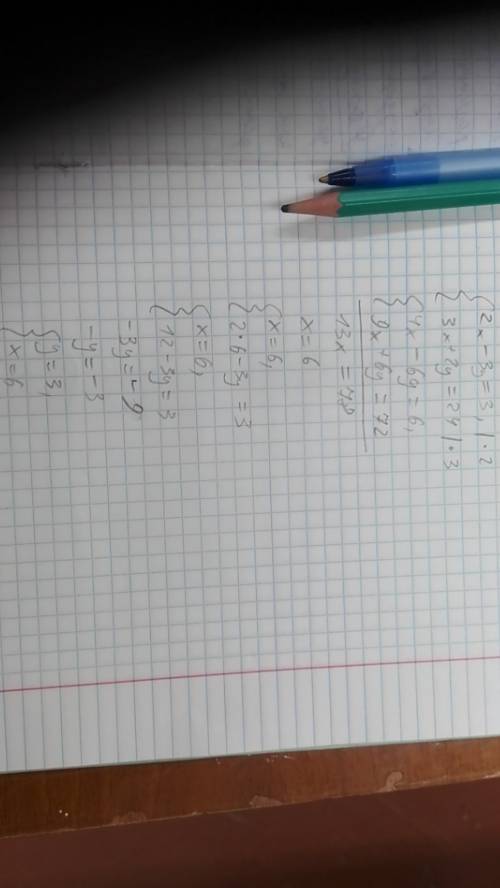 {2x-3=3, | · 2
{3x+2y=24 | · 3
{4x-6y=6,
{9x+6y=72
13x=78
x=6
{x=6,
{2·6-3y=3
{x=6,
{12-3y=3
-3y=-9
-y=-3
{y=3,
{x=6